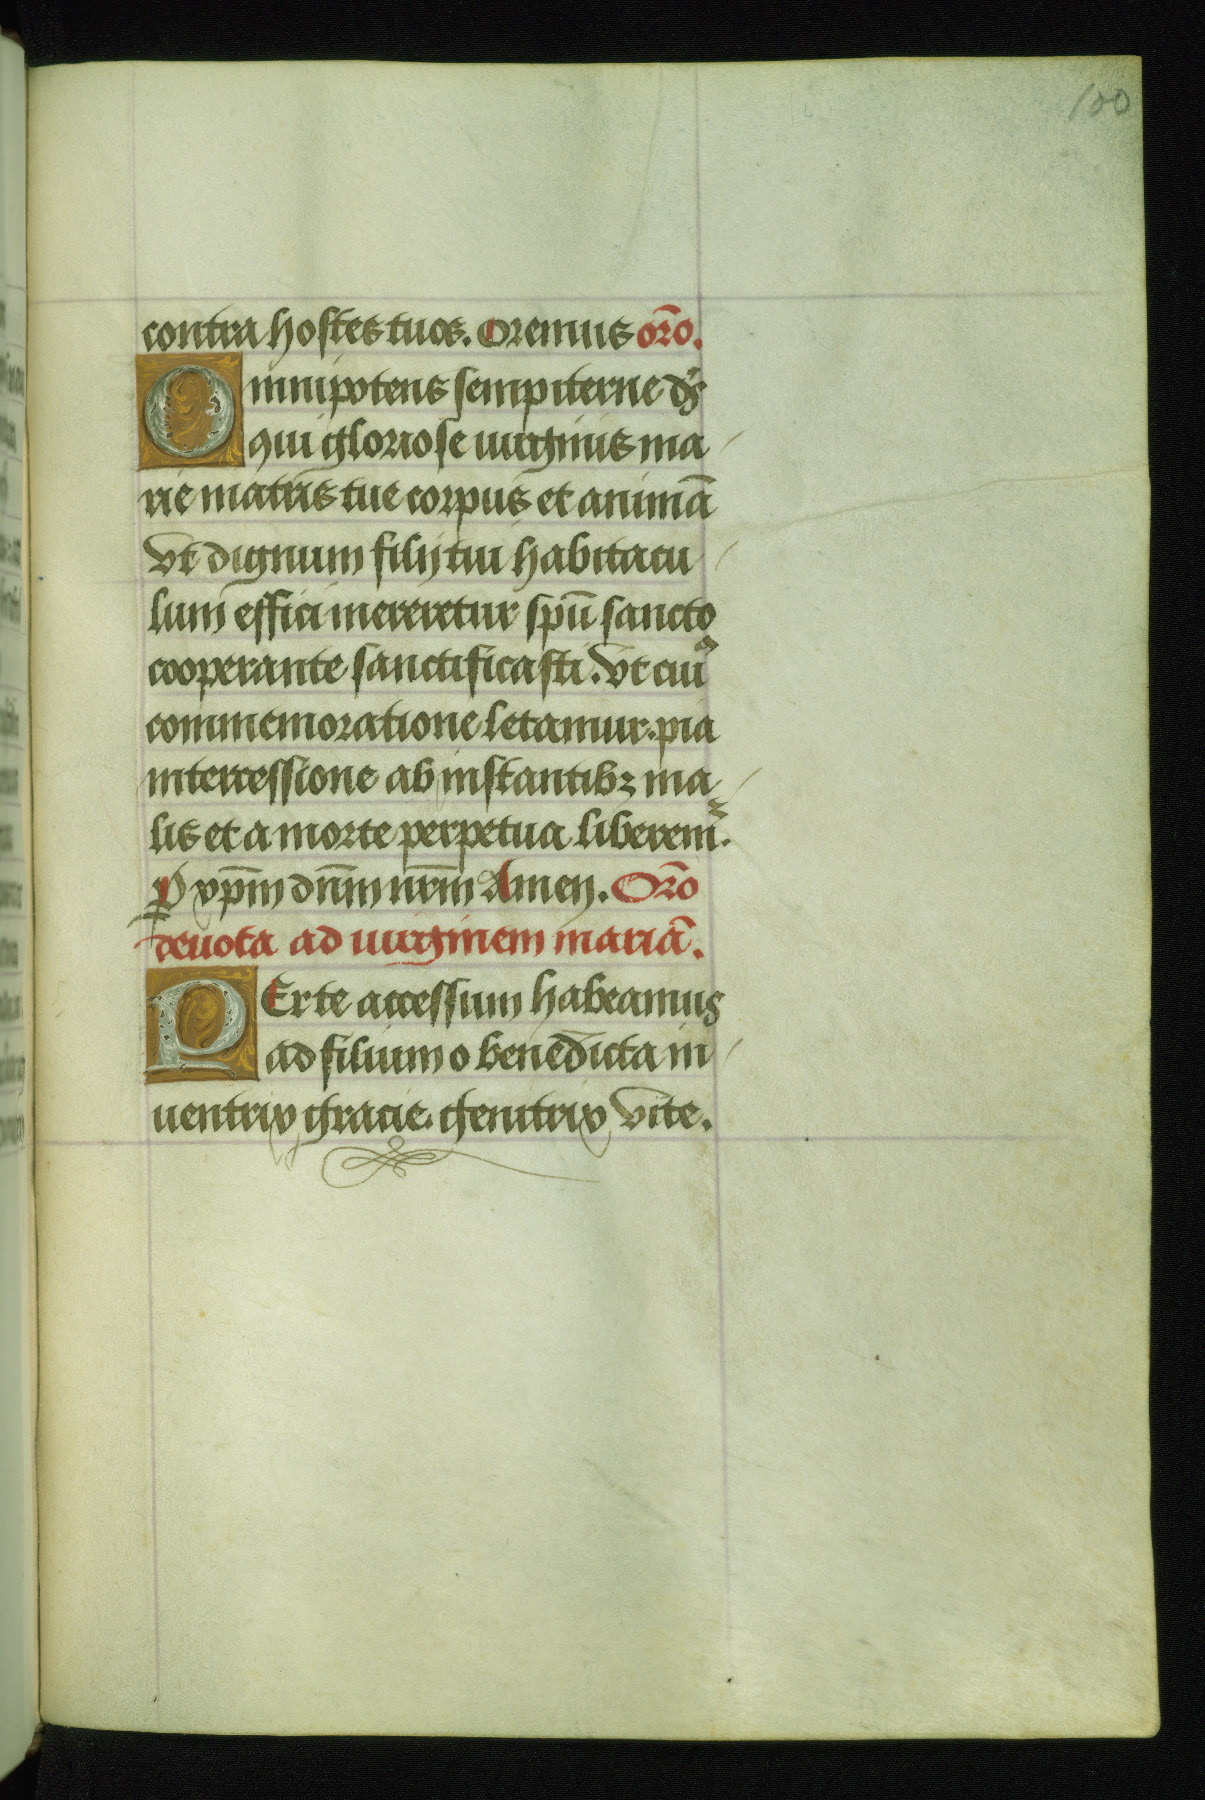 100
contra hostes tuos. Oremus or̄o.
Omnipotens sempiterne ds̄
qui gloriose uirginis ma
rie matris tue corpus et animā
vt dignum filij tui habitacu
lum effici mereretur spū sancto
cooperante sanctificasti. vt cuiꝰ
commemoratione letamur. pia
intercessione ab instantibꝫ ma
lis et a morte perpetua liberem̃.
P xp̄m dn̄m nr̄m Amen. Or̄o
deuota ad uirginem mariā.
PErte accessum habeamus
ad filium o benedicta in
uentrix gracie. genitrix vite.